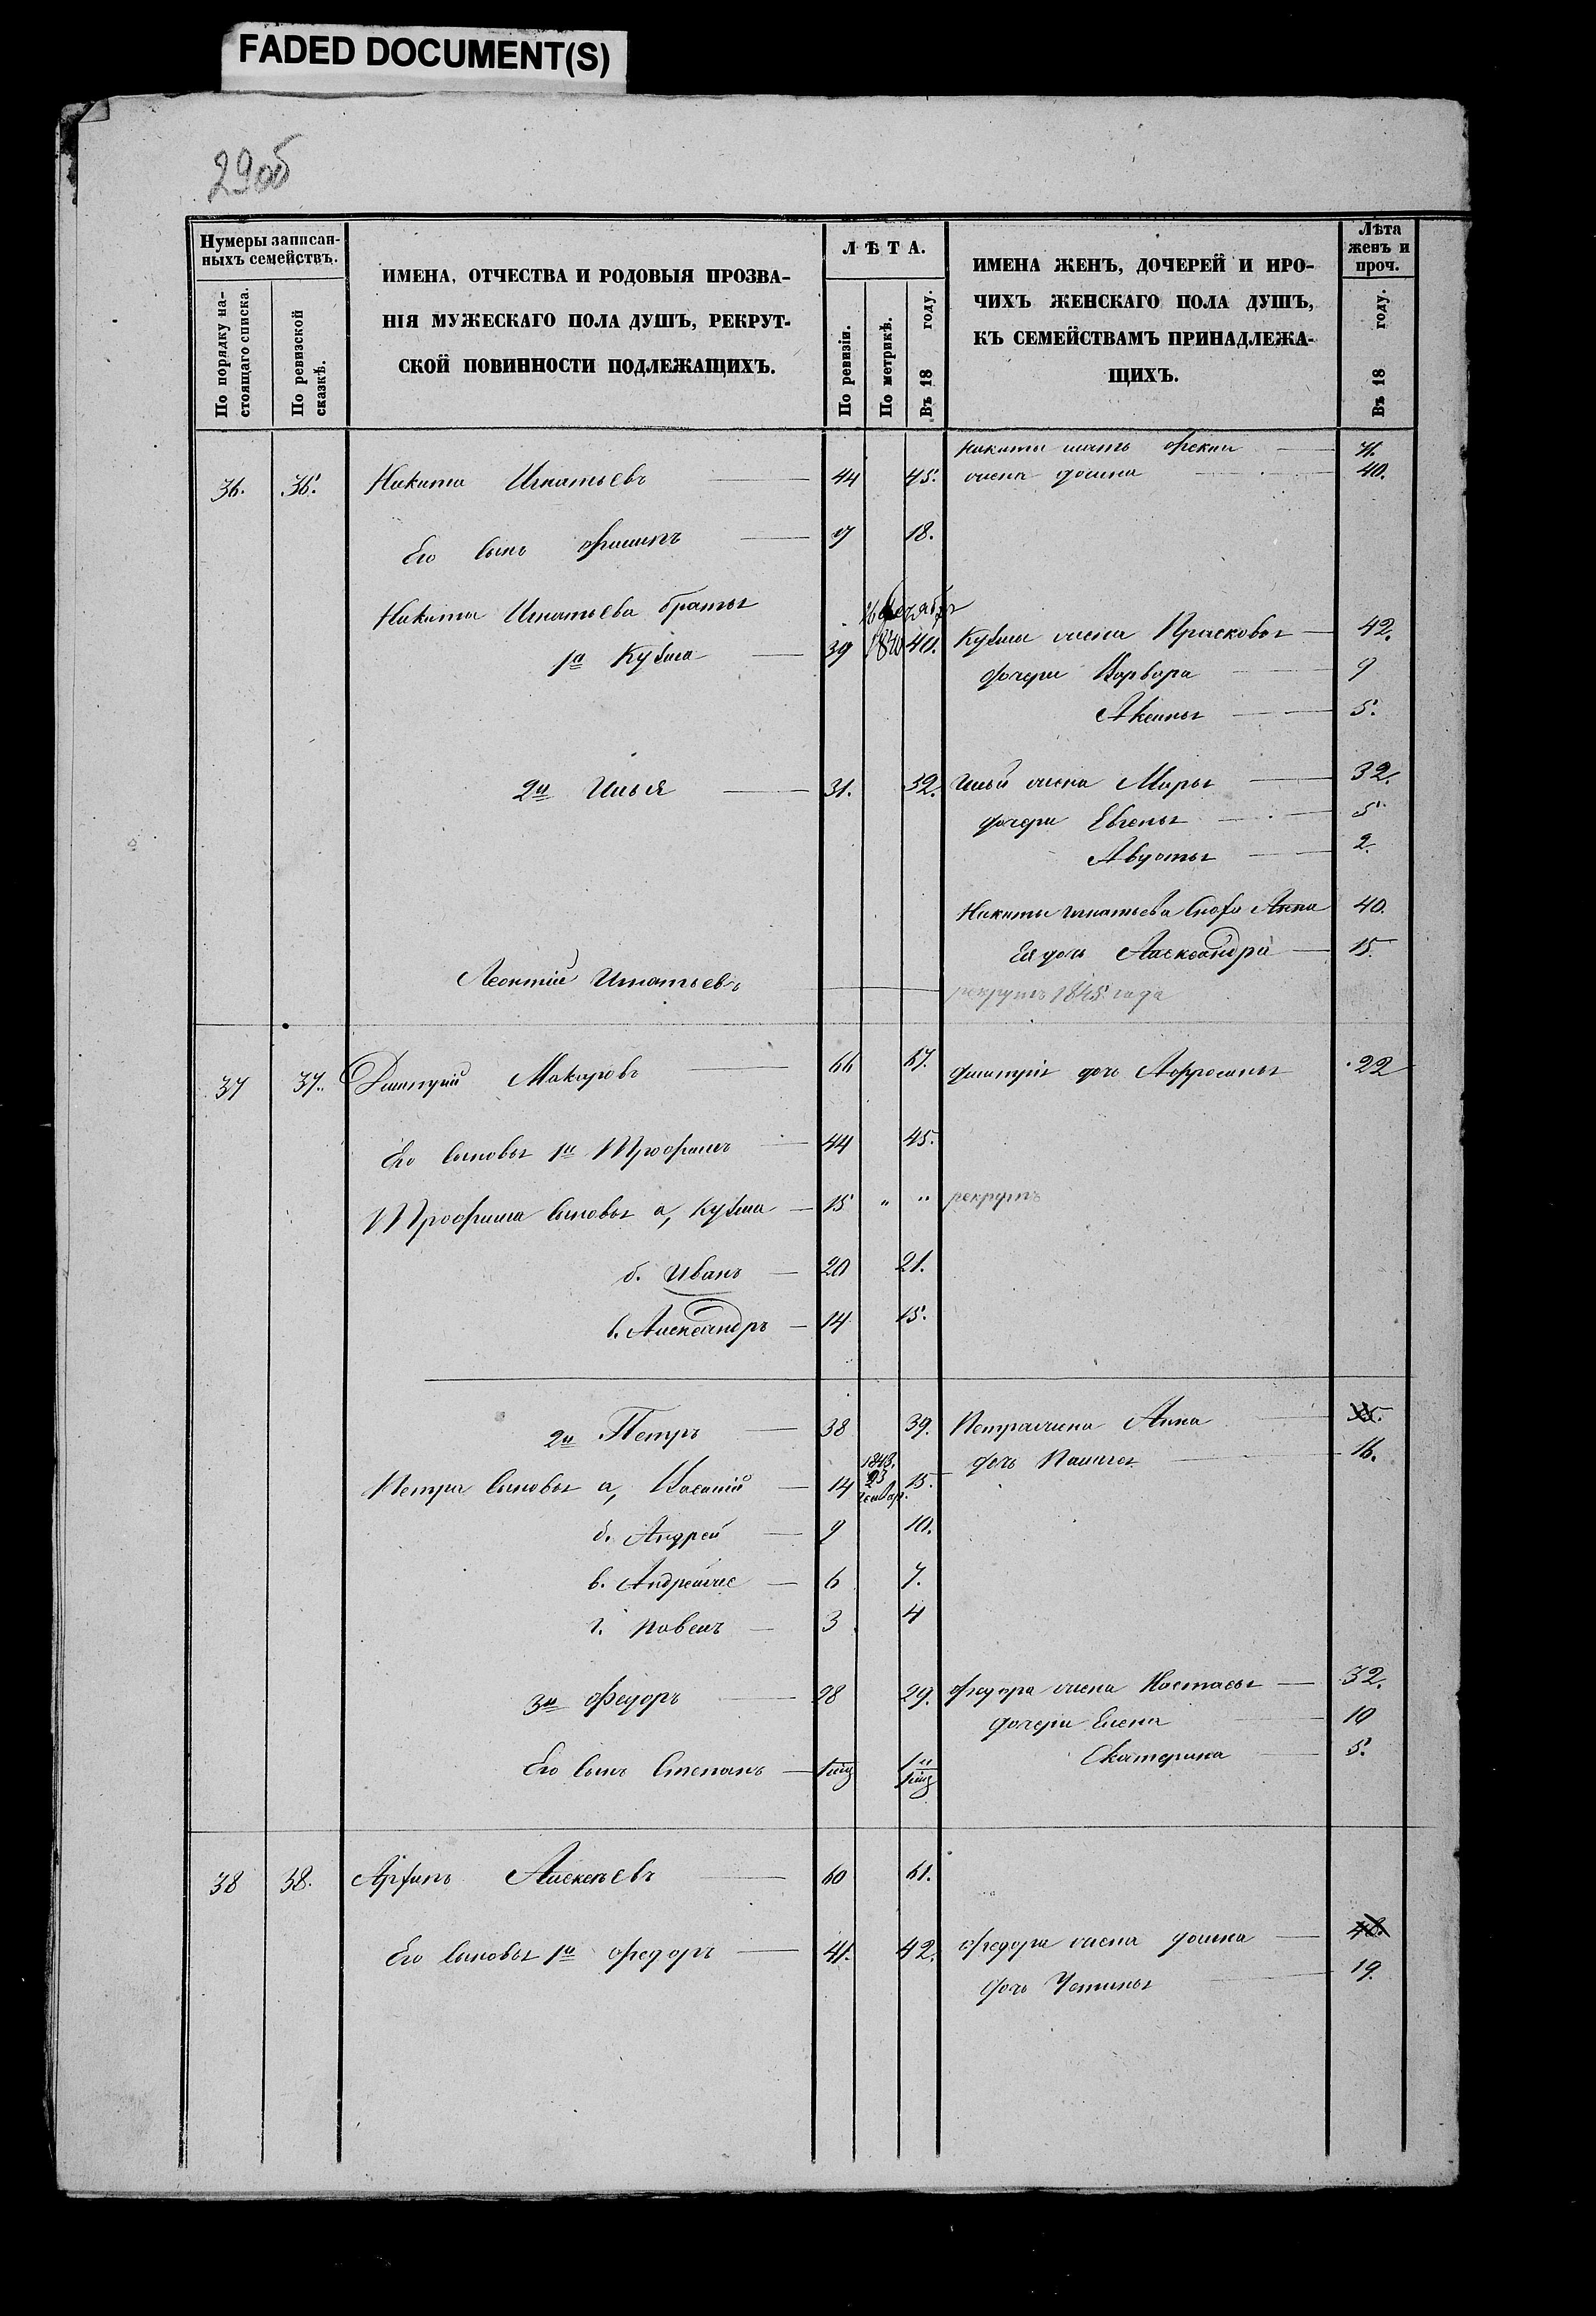 FADED DOCUMENT(S)
29об
Нумеры записан-
ныхъ семействъ.
По порядку на-
стоящаго списка.
По ревизской
сказкѣ.
ИМЕНА, ОТЧЕСТВА И РОДОВЫЯ ПРОЗВА-
НІЯ МУЖЕСКАГО ПОЛА ДУШЪ, РЕКРУТ-
СКОЙ ПОВИННОСТИ ПОДЛЕЖАЩИХЪ.
ЛѢТА.
По ревизіи.
По метрикѣ.
Въ 18 году.
ИМЕНА ЖЕНЪ, ДОЧЕРЕЙ И ПРО-
ЧИХЪ ЖЕНСКАГО ПОЛА ДУШЪ,
КЪ СЕМЕЙСТВАМЪ ПРИНАДЛЕЖА-
ЩИХЪ.
Лѣта
женъ и
проч.
Въ 18 году.
Никиты мать 71.
36. 36. Никита Игнатьевъ 44 45. жена Домна 40.
Его сынъ 17 18.
Никиты Игнатьева братья
1й Кузма 39 1840 40. Кузмы жена Прасковья 42.
дочери Варвара 9
Аксинья 5.
2й Илья 31. 32. Ильи жена Марья 32.
дочери Евгенья 5
Авдотья 2.
Никиты Игнатьева сноха Анна 40.
Ея дочь Александра 15.
Леонтій Игнатьевъ рекрутъ 1845 года
37 37. Дмитрій Макаровъ 66 67. Дмитрія дочь Афросинья 22
Его сыновья 1й Трофимъ 44 45.
Трофима сыновья а, Кузма 15 " " рекрутъ
б. Иванъ 20 21.
в. Александръ 14 15.
2й Петръ 38 39. Петра жена Анна
дочь 16.
1843.
23
генвар.
Петра сыновья а, Василій 14 15.
б. Андрей 9 10.
в. 6 7.
г. Павелъ 3 4
3й Федоръ 28 29. Федора жена Настасья 32.
дочери Елена 10
Его сынъ Степанъ Екатерина 5.
38 38. Алексѣевъ 60 61.
Его сыновья 1й Федоръ 41. 42. Федора жена Домна 48.
дочь Устинья 19.